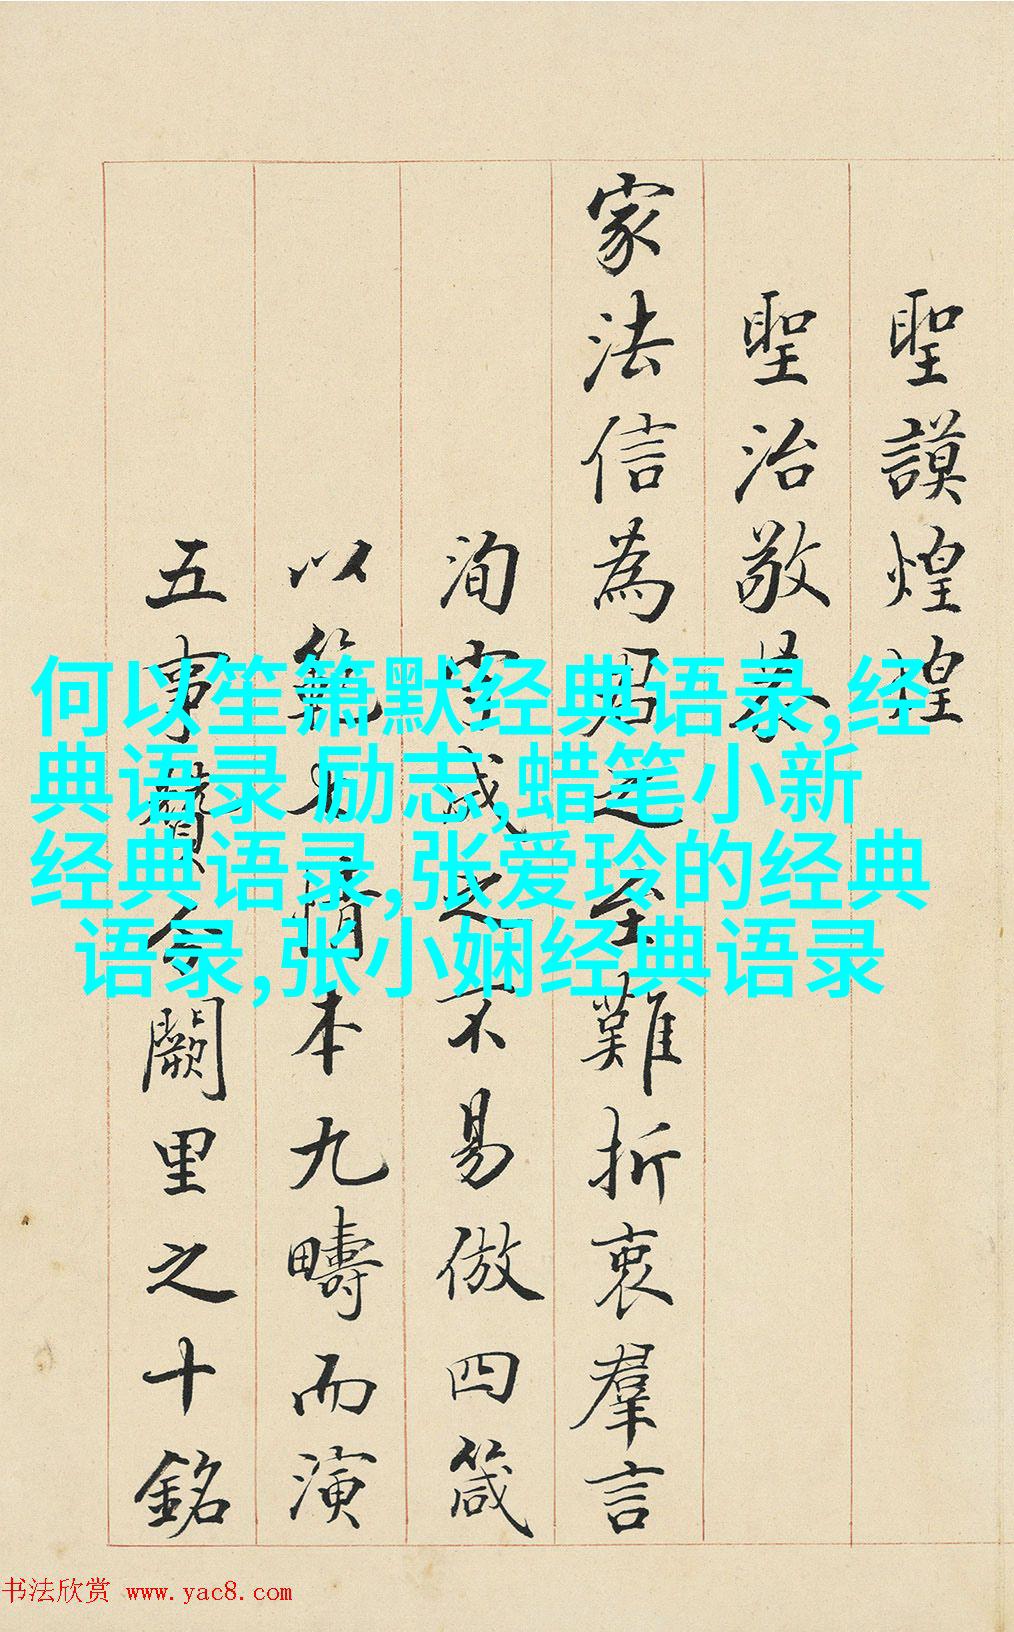 聖謨煌煌
聖治敬恭
家法信為君之至難折衷羣言
洵守成之不易倣四箴
以範七情本九疇而演
五事闕里之十銘
何以笙箫默经典语录,经
典语录 励志,蜡笔小新
经典语录,张爱玲的经典
语录,张小娴经典语录
书法欣赏 www.yac8.com